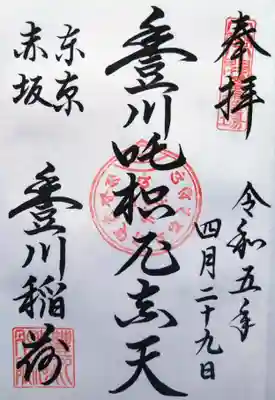 奉拝
令和五年
四月二十九日
豐川吒枳尼真天
东京
赤坂
豐川稲荷